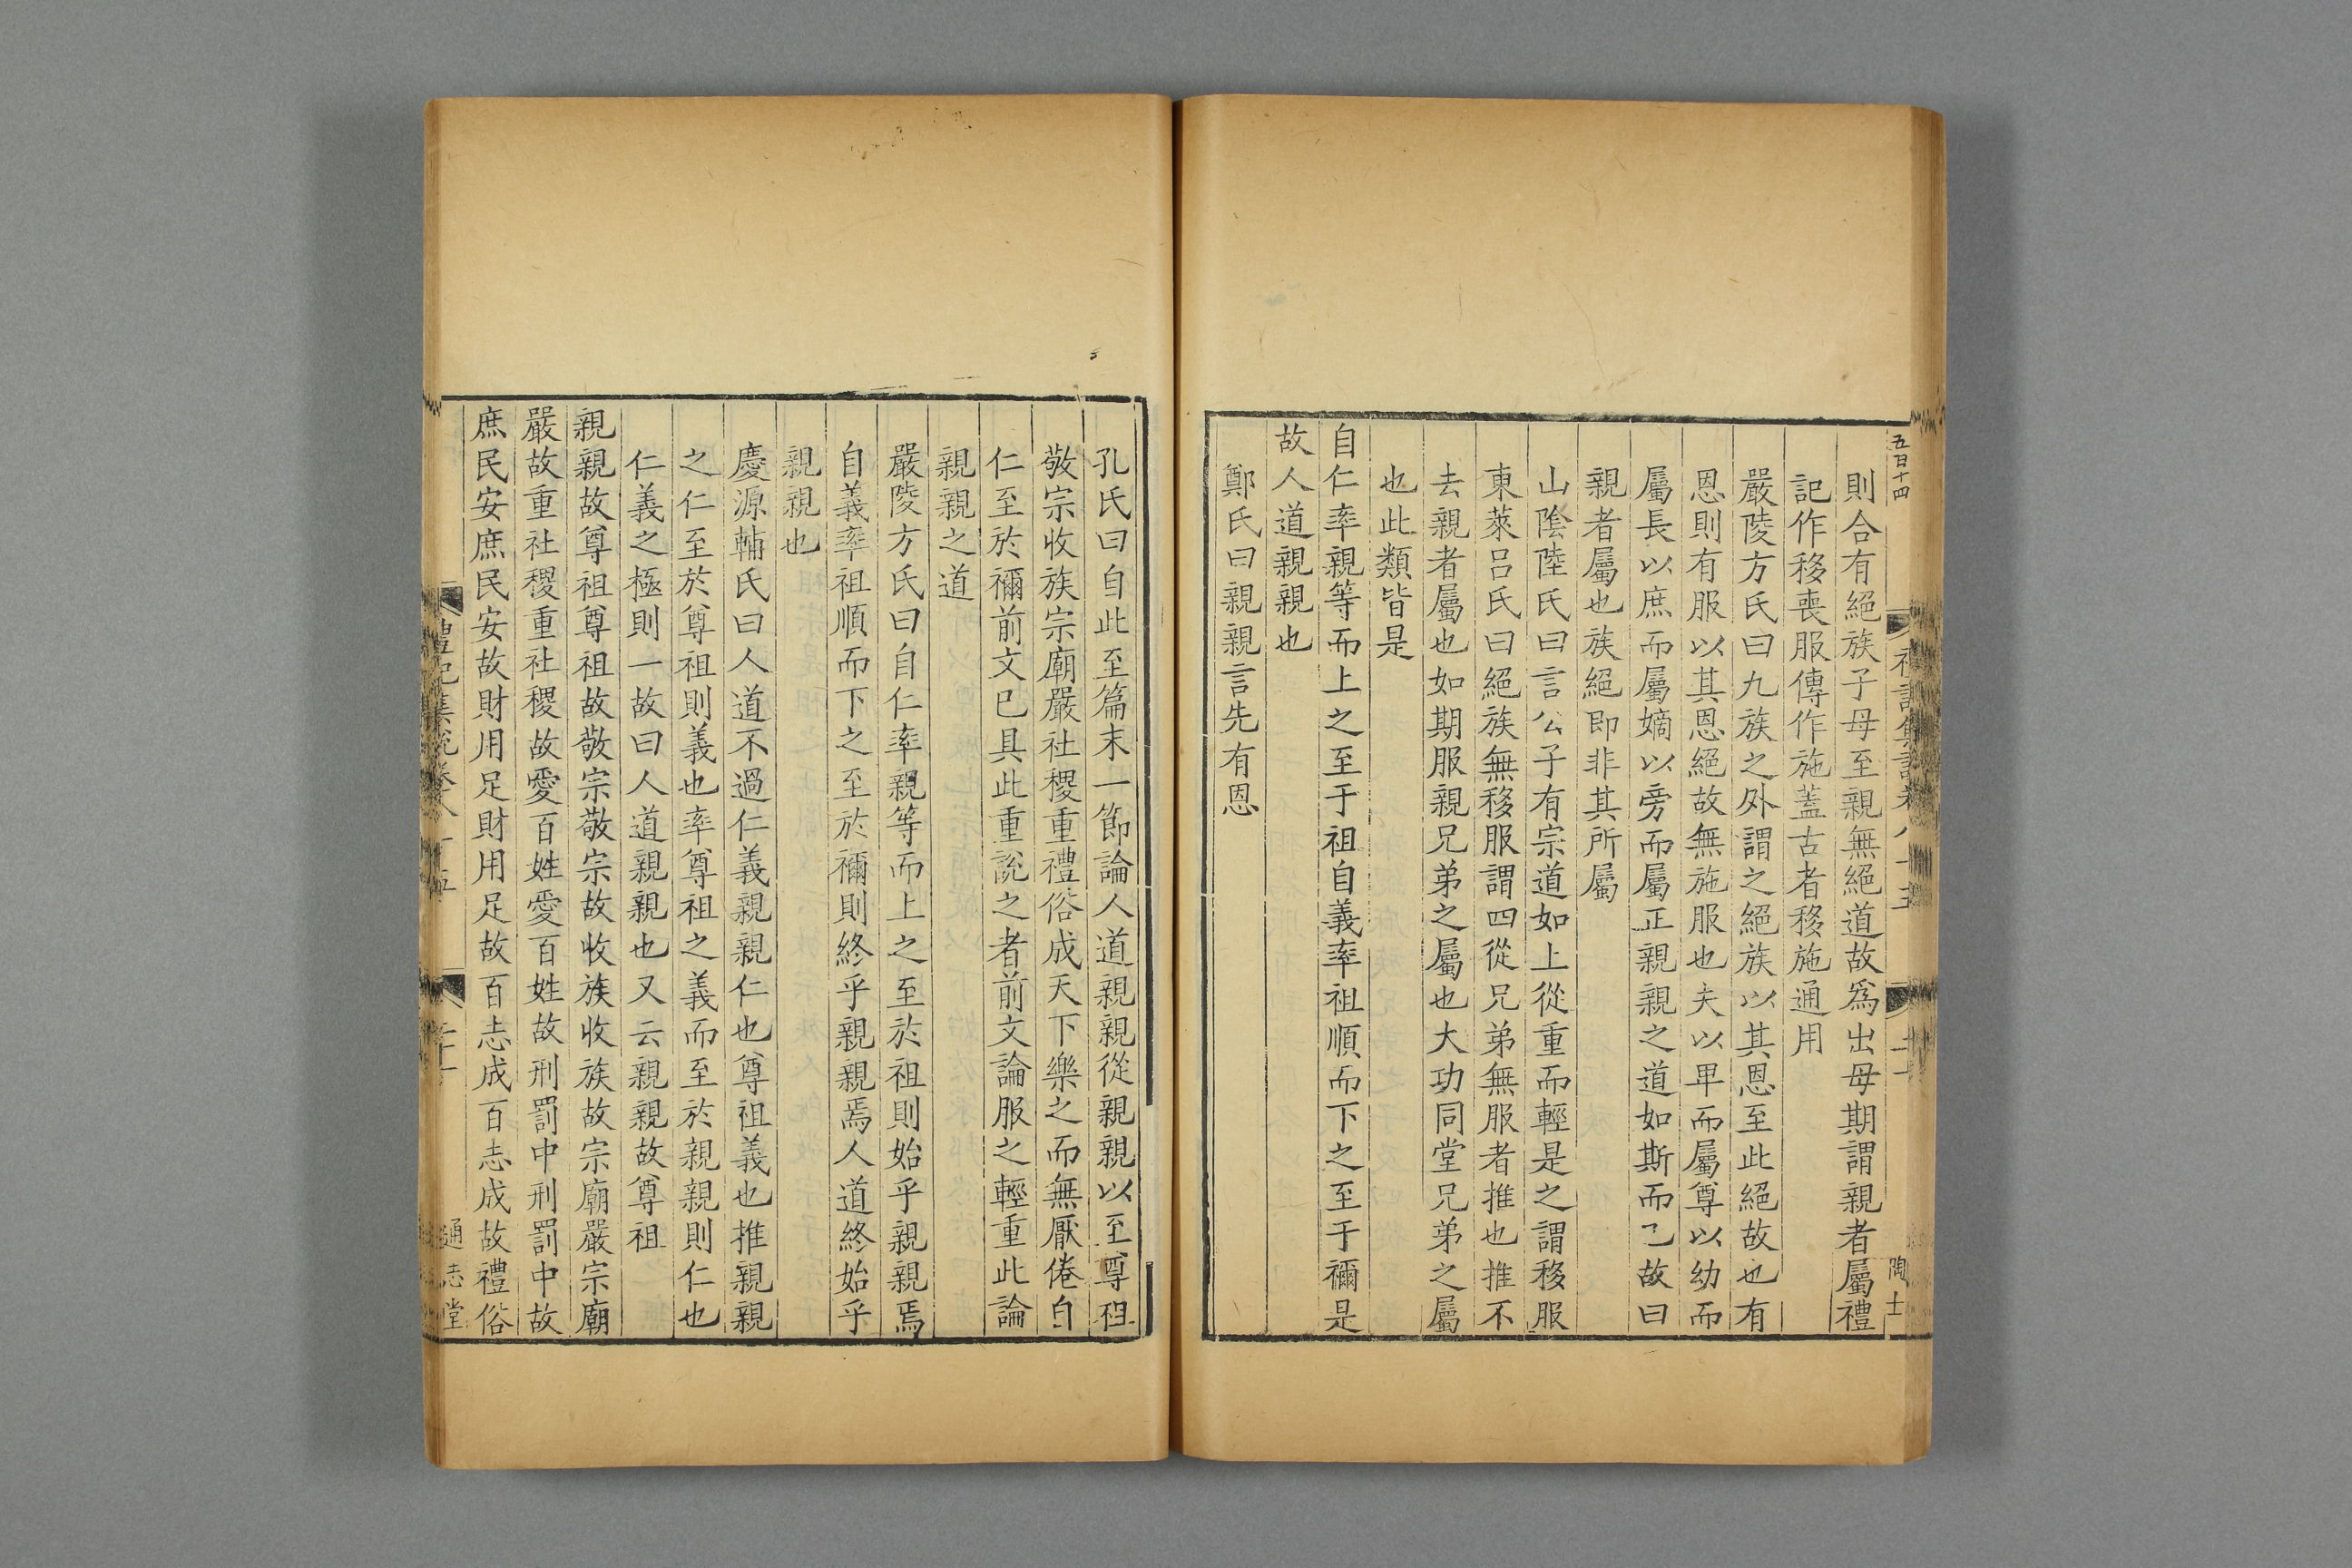 五百十四
陶士
則合有絕族子母至親無絕道故爲出母期謂親者屬禮
記作移喪服傳作施蓋古者移施通用
嚴陵方氏曰九族之外謂之絕族以其恩至此絕故也有
恩則有服以其恩絕故無施服也夫以卑而屬尊以幼而
屬長以庶而屬嫡以旁而屬正親親之道如斯而已故曰
親者屬也族絕即非其所屬
山陰陸氏曰言公子有宗道如上從重而輕是之謂移服
東萊呂氏曰絕族無移服謂四從兄弟無服者推也推不
去親者屬也如期服親兄弟之屬也大功同堂兄弟之屬
也此類皆是
自仁率親等而上之至于祖自義率祖順而下之至于禰是
故人道親親也
鄭氏曰親親言先有恩
孔氏曰自此至篇末一節論人道親親從親親以至尊祖
敬宗收族宗廟嚴社稷重禮俗成天下樂之而無厭倦自
仁至於禰前文已具此重說之者前文論服之輕重此論
親親之道
嚴陵方氏曰自仁率親等而上之至於祖則始乎親親焉
自義率祖順而下之至於禰則終乎親親焉人道終始乎
親親也
慶源輔氏曰人道不過仁義親親仁也尊祖義也推親親
之仁至於尊祖則義也率尊祖之義而至於親親則仁也
仁義之極則一故曰人道親親也又云親親故尊祖
親親故尊祖尊祖故敬宗敬宗故收族收族故宗廟嚴宗廟
嚴故重社稷重社稷故愛百姓愛百姓故刑罰中刑罰中故
庶民安庶民安故財用足財用足故百志成百志成故禮俗
禮記集說卷八十五
通志堂